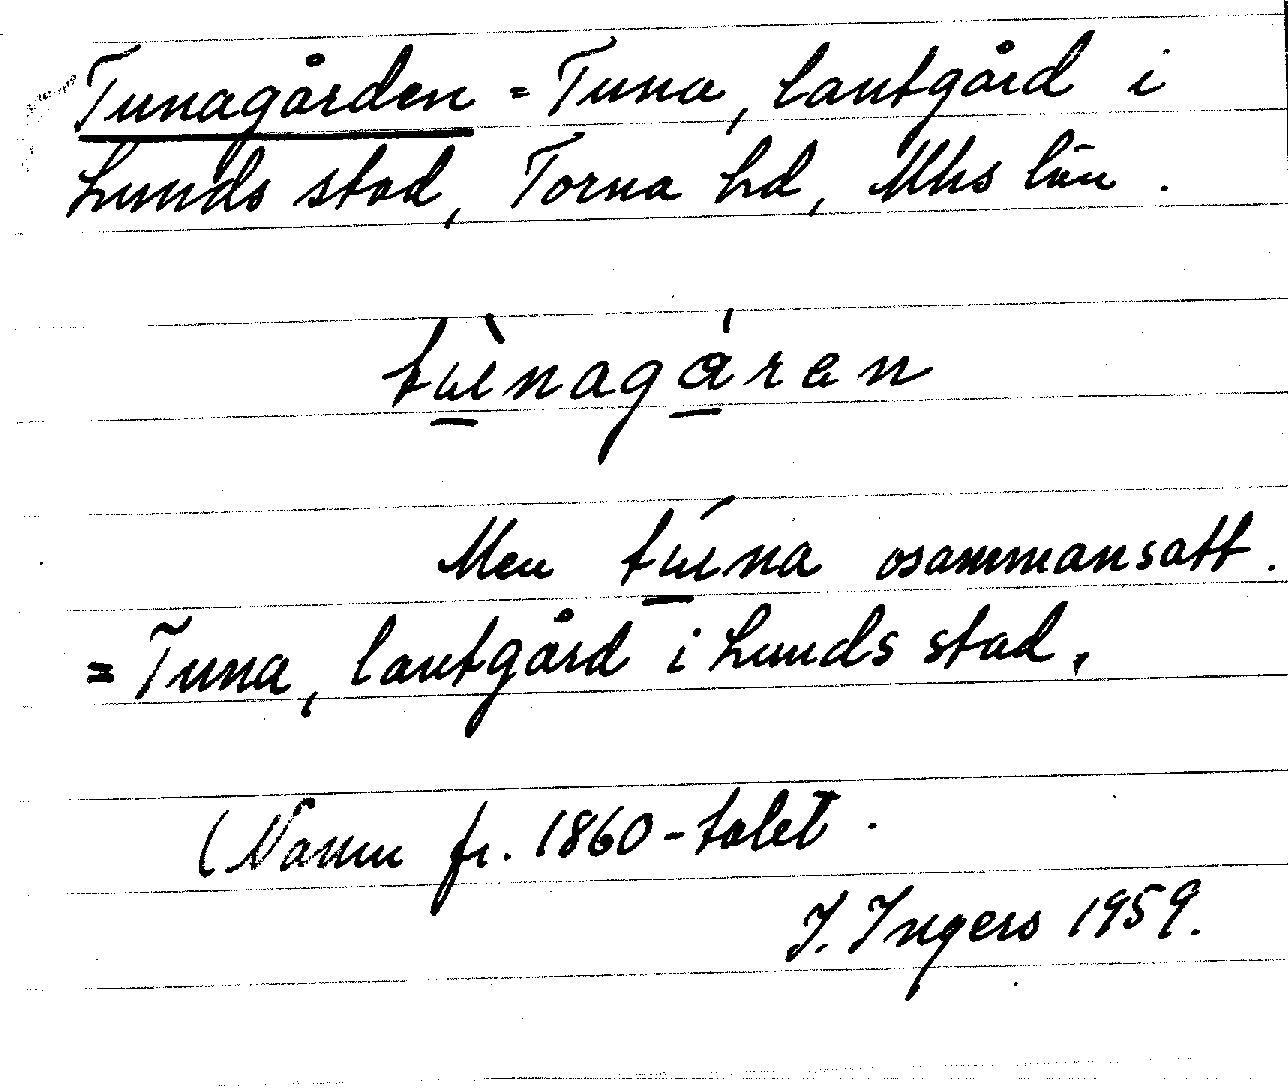 Tunagården = Tuna, lantgård i
Lunds stad, Torna hd, Mhs län.
tùnagáren
Men túna osammansatt.
= Tuna, lantgård i Lunds stad.
(Namn fr. 1860-talet.
I. Ingers 1959.